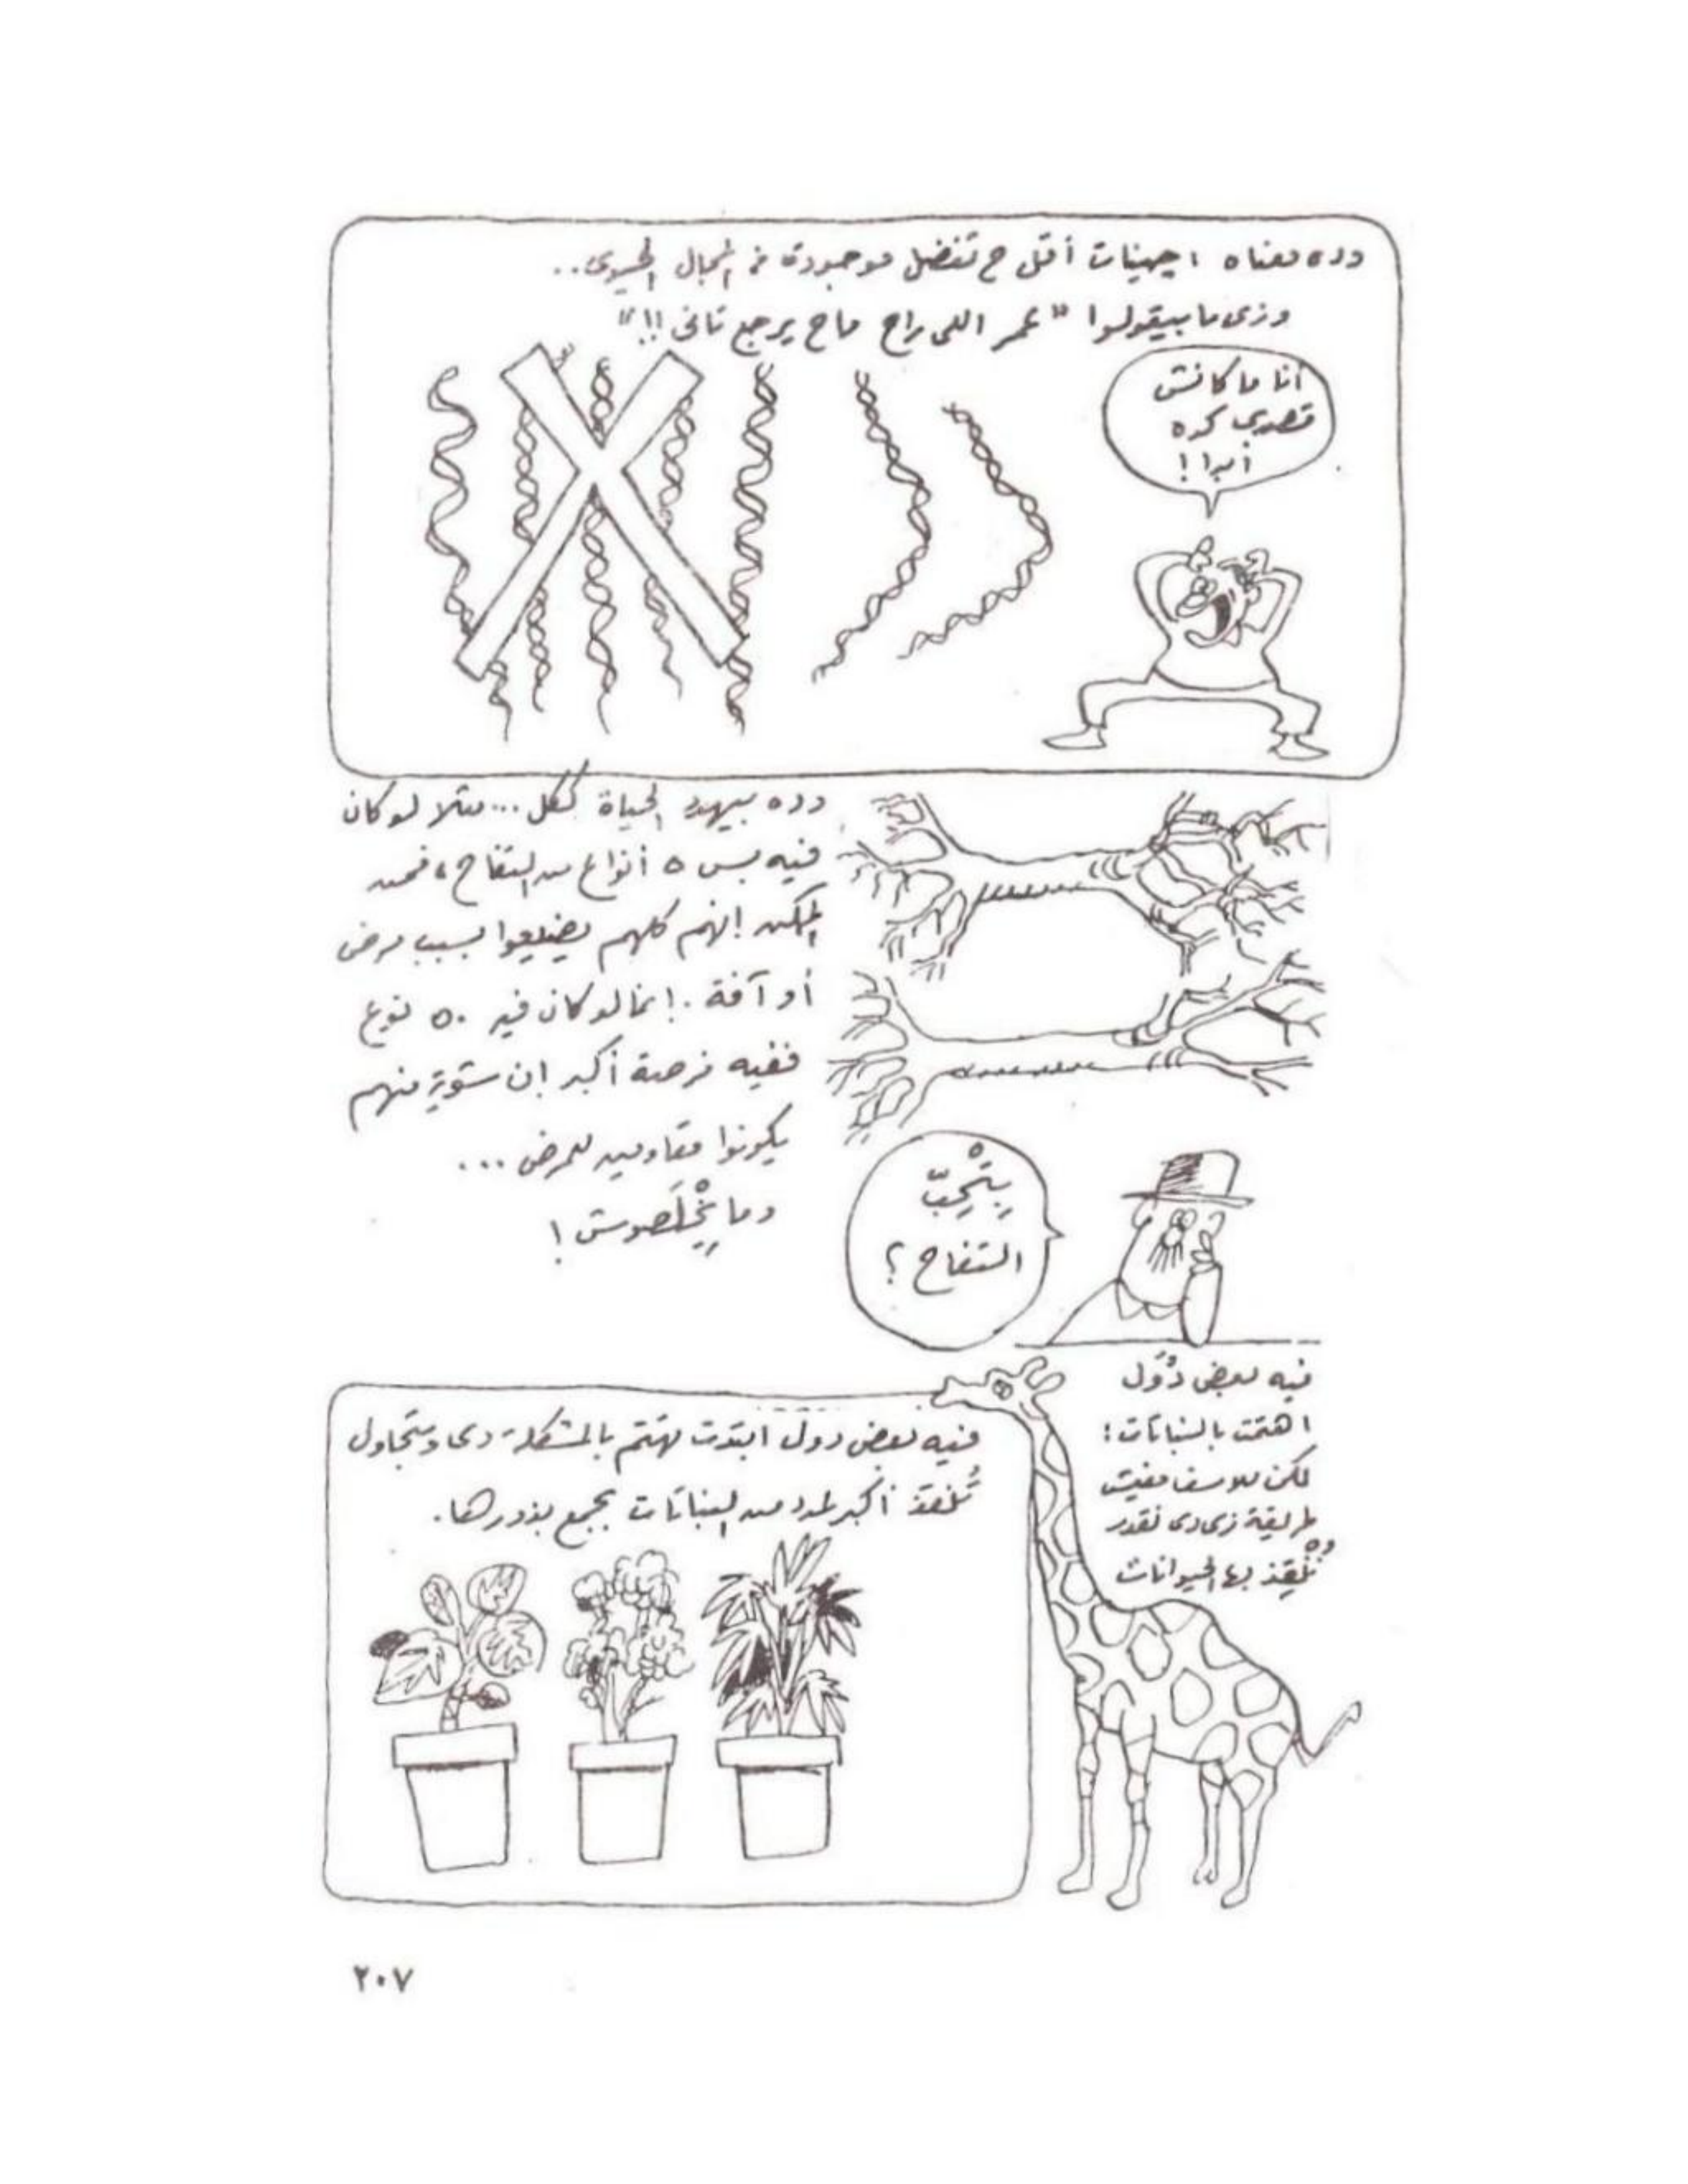 وده معناه ، چينات أقل ح تفضل موجودة في المجال الحيوى..
وزى ما بيقولوا " عمر اللى راح ماح يرجع تانى !! "
أنا ما كانش
قصدى كده
أبدا !
وده بيهدد الحياة ككل ... مثلا لو كان
فيه بس ٥ أنواع من التفاح ، فمن
الممكن إنهم كلهم يضيعوا بسبب مرض
أو آفة . إنما لو كان فيه ٥٠ نوع
ففيه فرصة أكبر إن ستوية منهم
يكونوا مقاومين للمرض ...
وما يِخْلَصوش !
بِتْحِبّ
التفاح ؟
فيه بعض دُوَل
اهتمت بالنباتات :
لكن للاسف مفيش
طريقة زى دى نقدر
نُنْقِذ بها الحيوانات
فيه بعض دول ابتدت تهتم بالمشكلة دى وبتحاول
تُنقذ أكبر عدد من النباتات بجمع بذورها .
٢٠٧